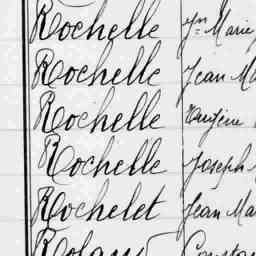 Rochelle Jn Marie
Rochelle Jean Ma
Rochelle Eugène
Rochelle Joseph
Rochelet Jean Ma
Roland Consta